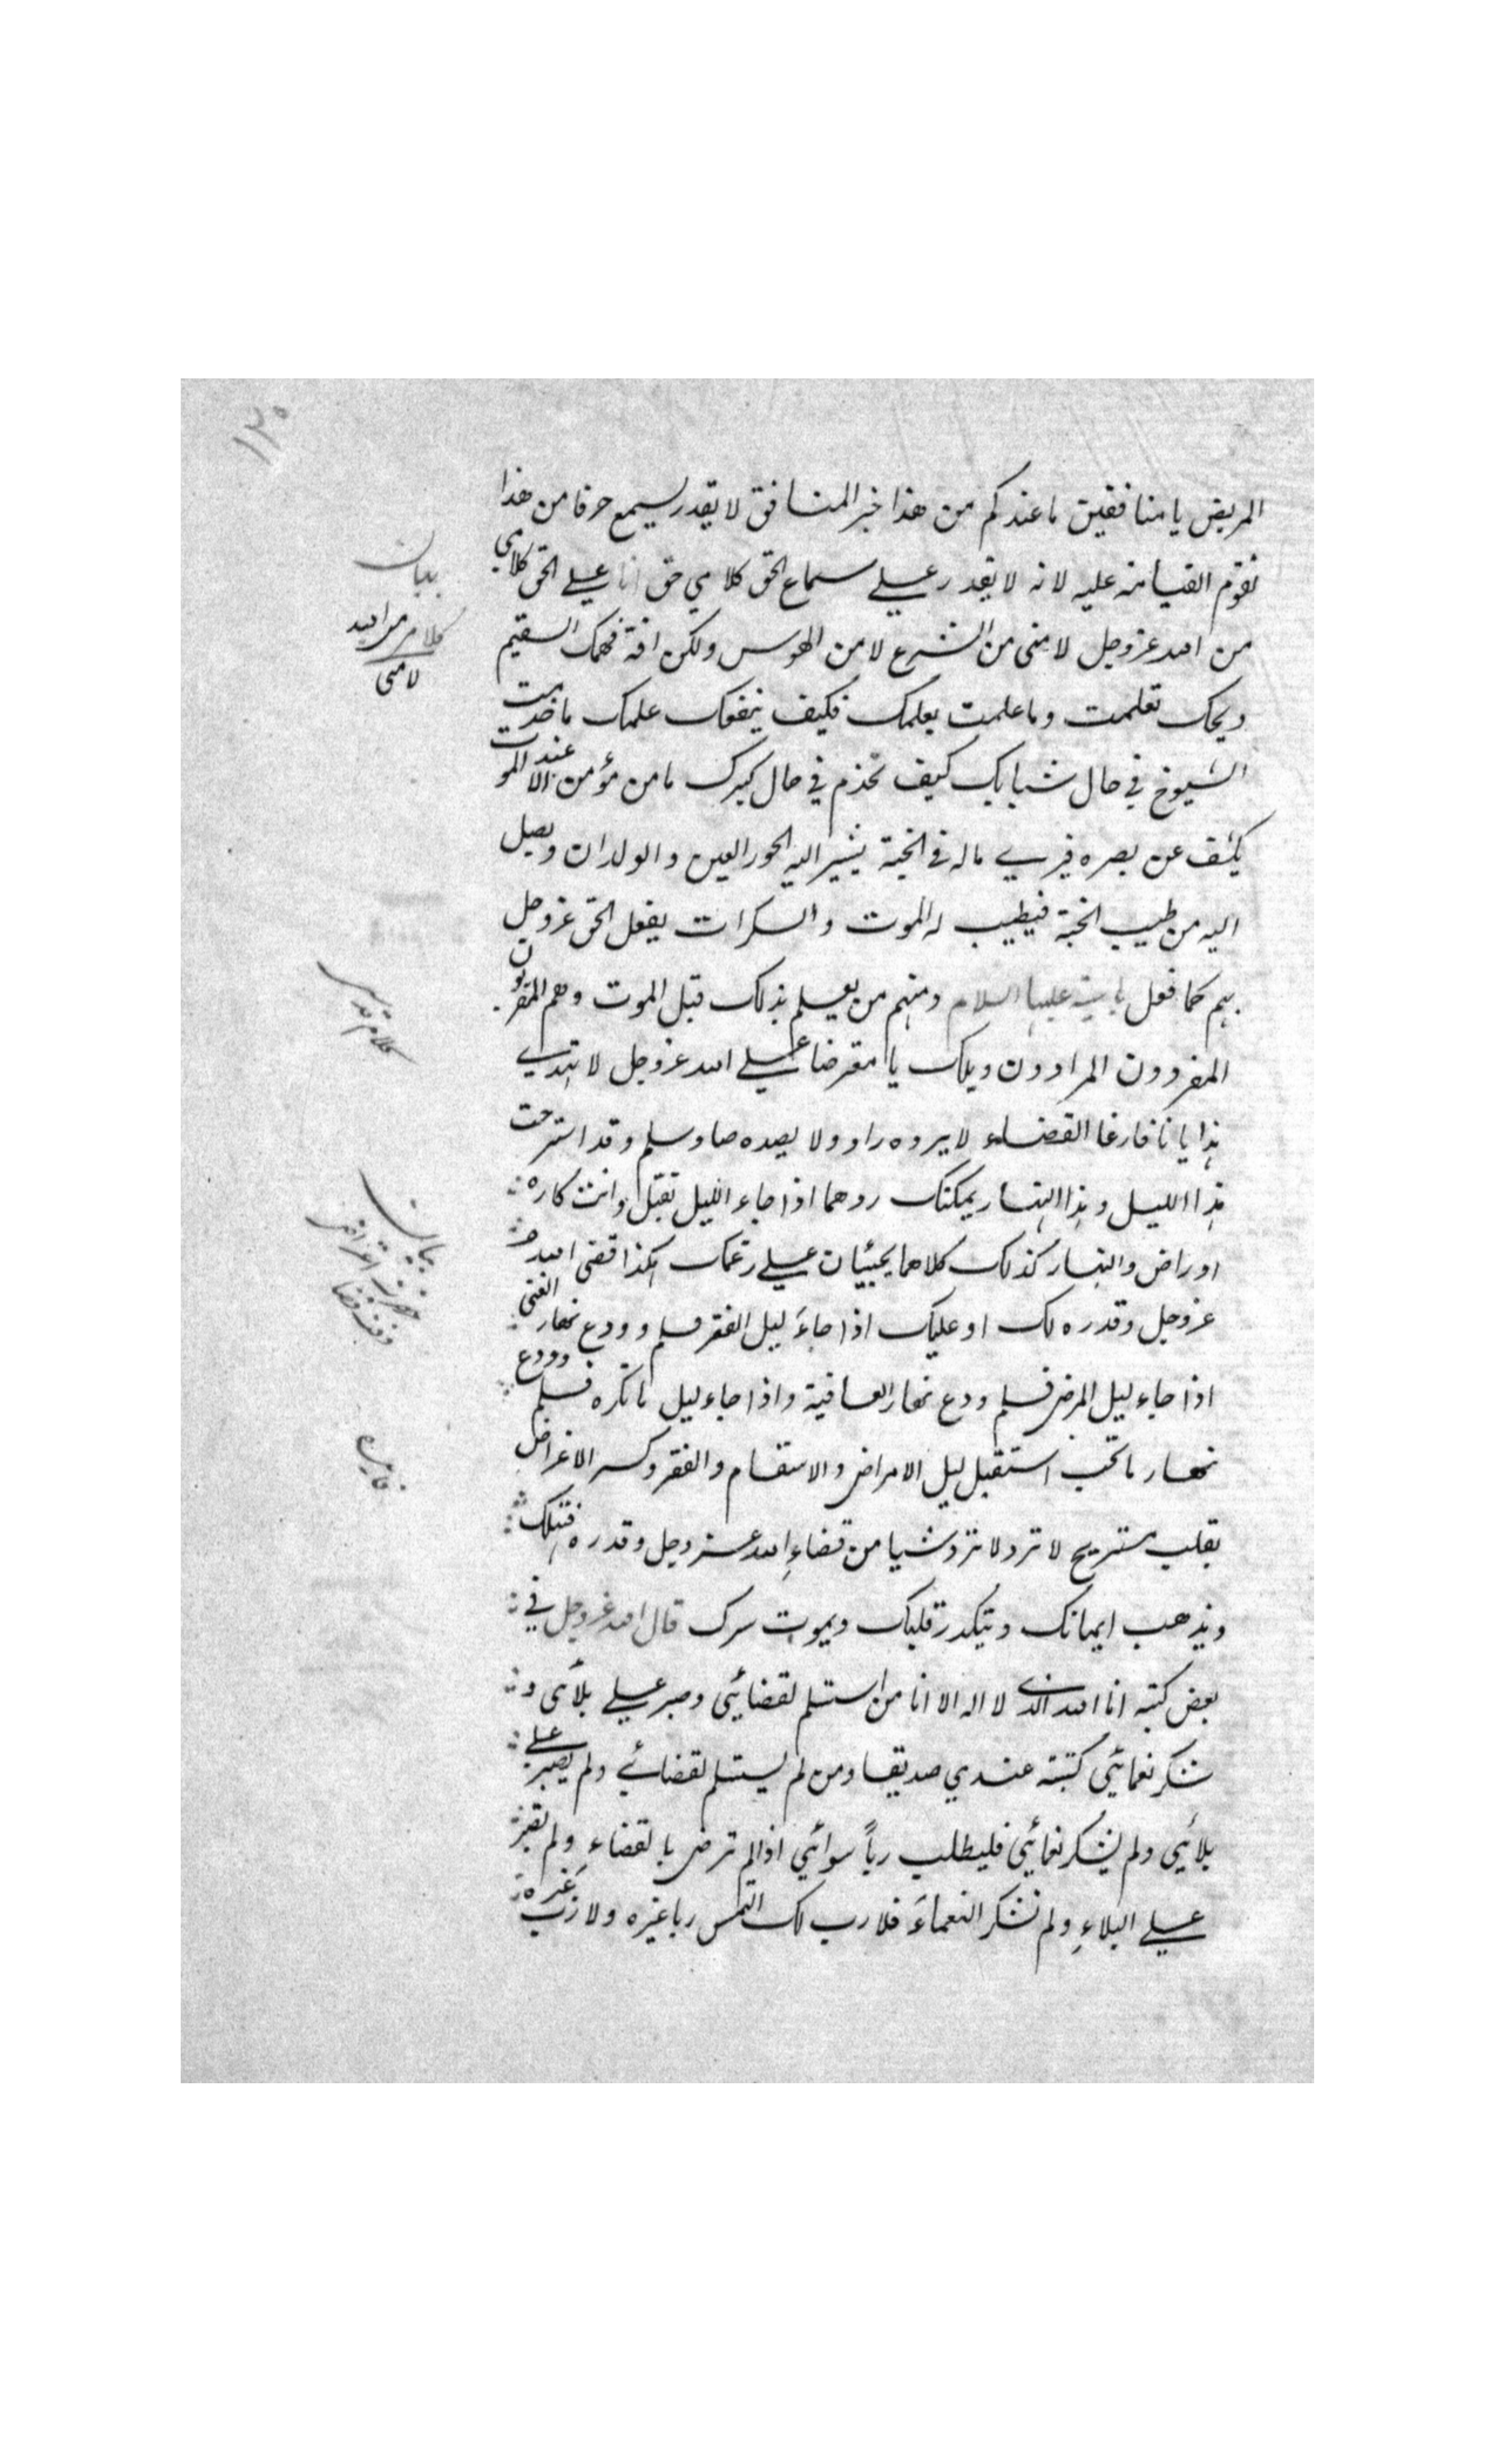 ١٣٥
المريض يا منافقين ما عندكم من هذا خبر المنافق لا يقدر يسمع حرفا من هذا
تقوم القيامة عليه لانه لا يقدر علي سماع الحق كلامي حق انا علي الحق كلامي
من الله عز وجل لا مني من الشرع لا من الهوس ولكن افة فهمك السقيم
ويحك تعلمت وما علمت بعلمك فكيف ينفعك علمك ما خدمت
الشيوخ في حال شبابك كيف تخدم في حال كبرك ما من مؤمن الا عند الموت
يكشف عن بصره فيري ماله في الجنة يشير اليه الحور العين والولدان ويصل
اليه من طيب الجنة فيطيب له الموت والسكرات يفعل الحق عز وجل
بهم كما فعل باسية عليها السلام ومنهم من يعلم بذلك قبل الموت وهم المقربون
المفردون المرادون ويلك يا معترضا علي الله عز وجل لا تهذي
هذيانا فارغا القضاء لا يرده راد ولا يصده صاد سلم وقد استرحت
هذا الليل وهذا النهار يمكنك ردهما اذا جاء الليل تقبل وانت كاره
او راض والنهار كذلك كلاهما يجيئان علي رغمك هكذا قضي الله
عز وجل وقدره لك او عليك اذا جاء ليل الفقر فسلم وودع نهار الغني
اذا جاء ليل المرض فسلم ودع نهار العافية واذا جاء ليل ما تكره فسلم وودع
نهار ما تحب استقبل ليل الامراض والاسقام والفقر وكسر الاغراض
بقلب مستريح لا ترد لا ترد شيا من قضاء الله عز وجل وقدره فتهلك
ويذهب ايمانك ويتكدر قلبك ويموت سرك قال الله عز وجل في
بعض كتبه انا الله الذي لا اله الا انا من استسلم لقضائي وصبر علي بلائي و
شكر نعمائي كتبته عندي صديقا ومن لم يستسلم لقضائي ولم يصبر علي
بلائي ولم يشكر نعمائي فليطلب رباً سوائي اذا لم ترض بالقضاء ولم تصبر
علي البلاء ولم تشكر النعماء فلا رب لك التمس ربا غيره ولا رب غيره
بيان
كلام من الله
لا مني